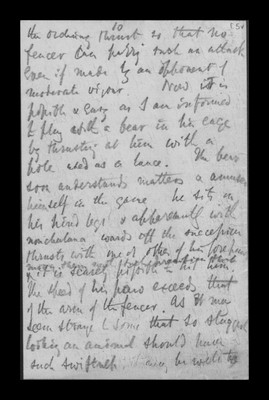 10
the ordinary thrust is that no
fencer can parry such an attack
even if made by an opponent of
moderate vigour. Now it is
possible & easy as I am informed
to play with a bear in his cage
by thrusting at him with a
pole used as a lance. The bear
soon understands matters & amuses
himself in the game he sits on
his hind legs & apparently with
nonchalance wards off the successive
thrusts with one or other of his forepaws
& it is scarcely possible to hit him.
The speed of his paws exceeds that
of the arm of the fencer. As it may
seem strange to some that so sluggish
looking an animal should have
such swiftness